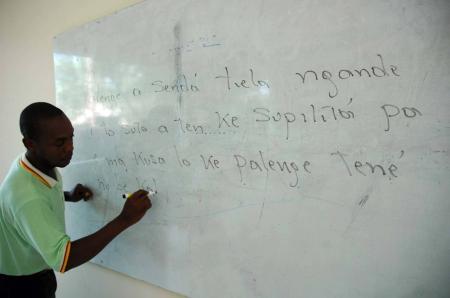 a sendá tiela ngande
lo suto a ten..... ke supilitá pa
ma kusa lo ke palenge tené